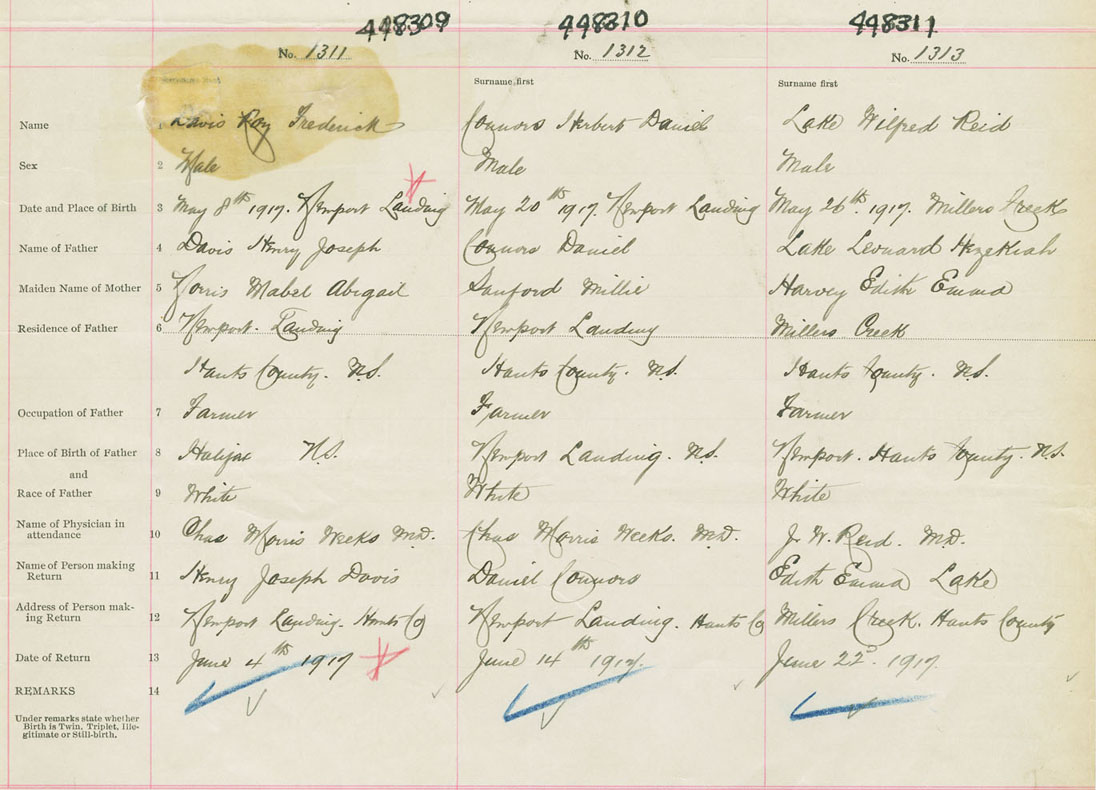 448309 448310 448311
No. 1311 No. 1312 No. 1313
Surname first Surname first
Name 1 Davis Roy Frederick Connors Herbert Daniel Lake Wilfred Reid
Sex 2 Male Male Male
Date and Place of Birth 3 May 8th 1917. Newport Landing May 20th 1917. Newport Landing May 26th. 1917. Millers Creek
Name of Father 4 Davis Henry Joseph Connors Daniel Lake Leonard Hezekiah
Maiden Name of Mother 5 Norris Mabel Abigail Sanford Millie Harvey Edith Emma
Residence of Father 6 Newport. Landing Newport Landing Millers Creek
Hants County. N.S. Hants County. N.S. Hants County. N.S.
Occupation of Father 7 Farmer Farmer Farmer
Place of Birth of Father 8 Halifax N.S. Newport Landing. N.S. Newport. Hants County. N.S.
and
Race of Father 9 White White White
Name of Physician in
attendance 10 Chas Morris Weeks M.D. Chas Morris Weeks. M.D. J. W. Reid. M.D.
Name of Person making
Return 11 Henry Joseph Davis Daniel Connors Edith Emma Lake
Address of Person mak-
ing Return 12 Newport Landing. Hants Co Newport Landing. Hants Co Millers Creek. Hants County
Date of Return 13 June 4th 1917 June 14th 1917. June 22d. 1917.
REMARKS 14
Under remarks state whether
Birth is Twin, Triplet, Ille-
gitimate or Still-birth.